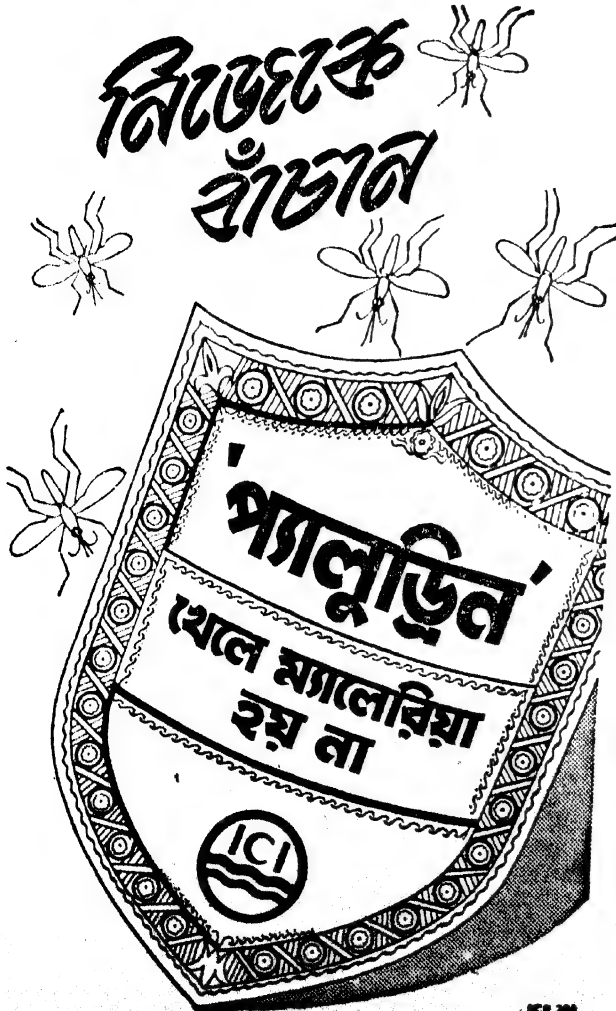 নিজেকে
বাঁচান
'প্যালুড্রিন'
খেলে ম্যালেরিয়া
হয় না
ICI